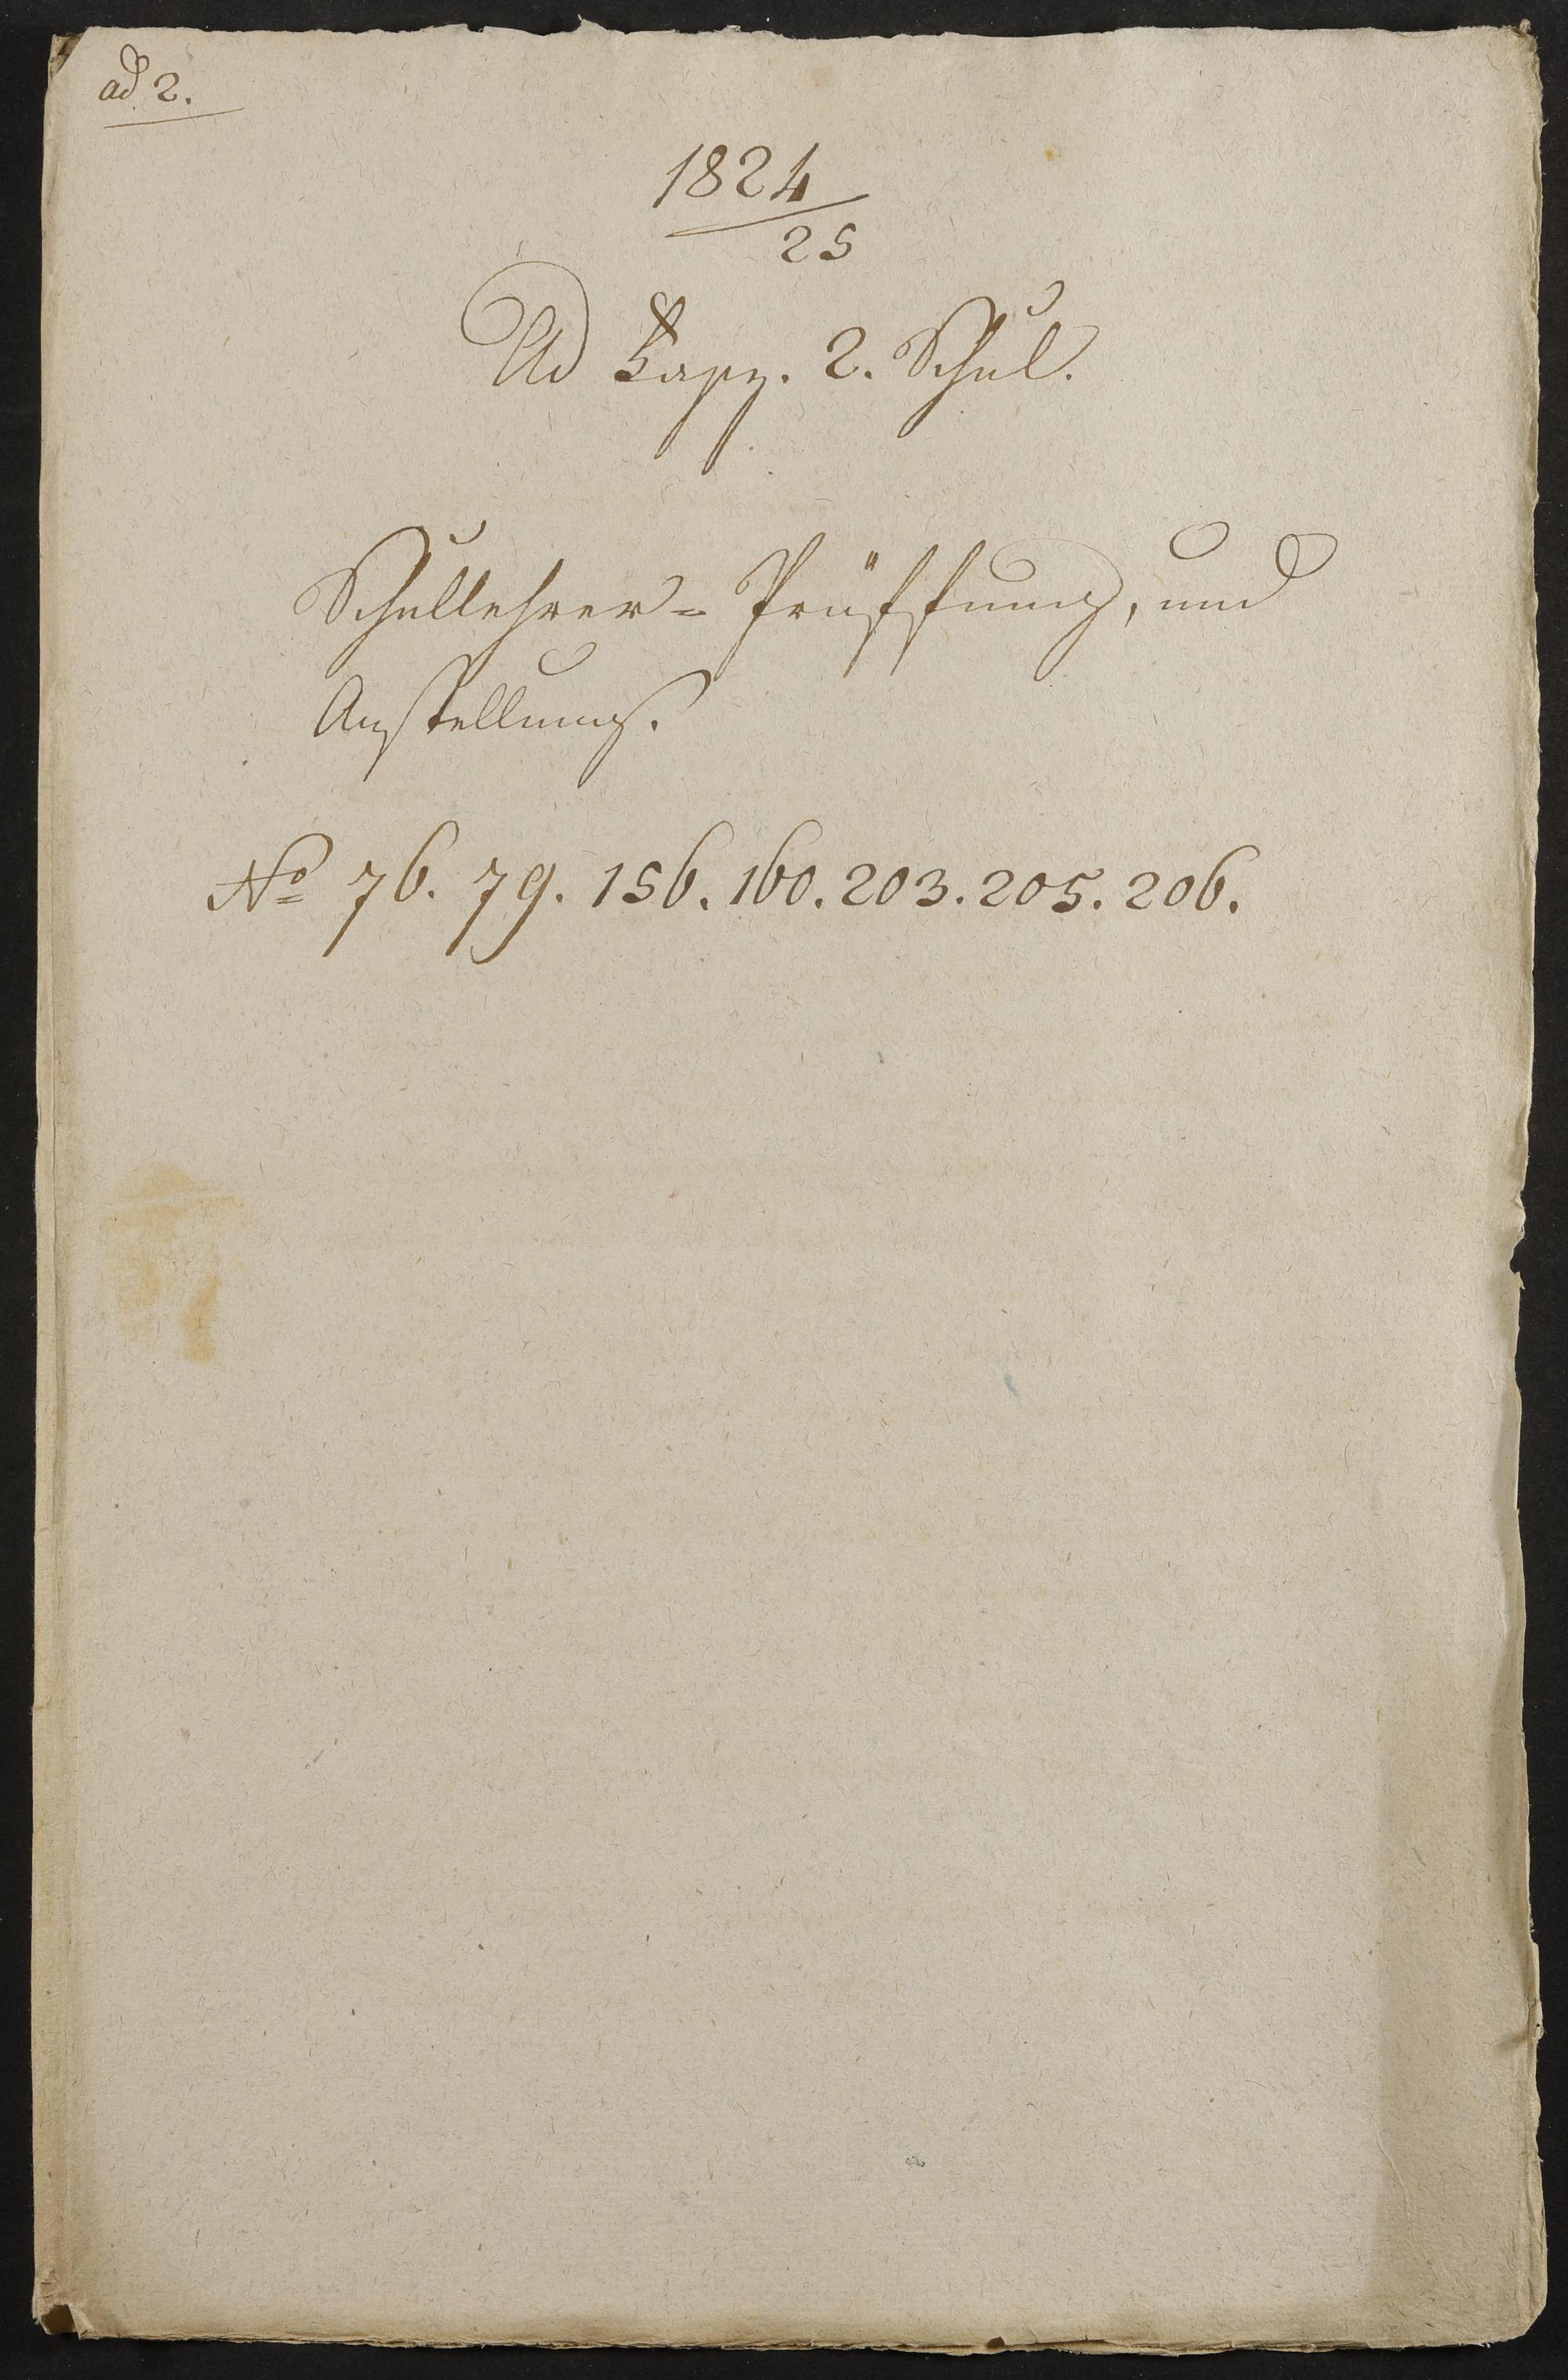 ad 2.
1824
25
Ad Kapp. 2. Schul.
Schullehrer- Prüffung, und
Anstellung.
No 76. 79. 156. 160. 203. 205. 206.